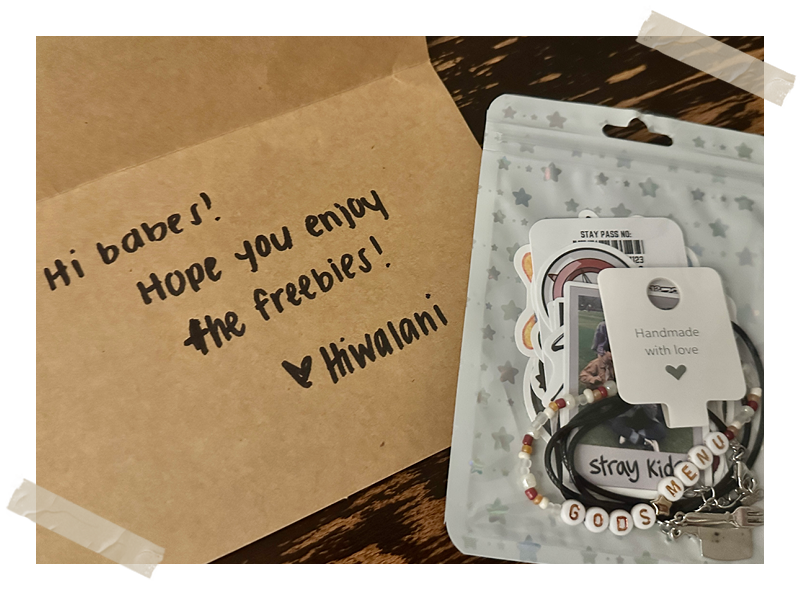 Hi babes!
Hope you enjoy
the freebies!
♥ Hiwalani
STAY PASS NO:
Handmade
with love
stray kids
GODS MENU